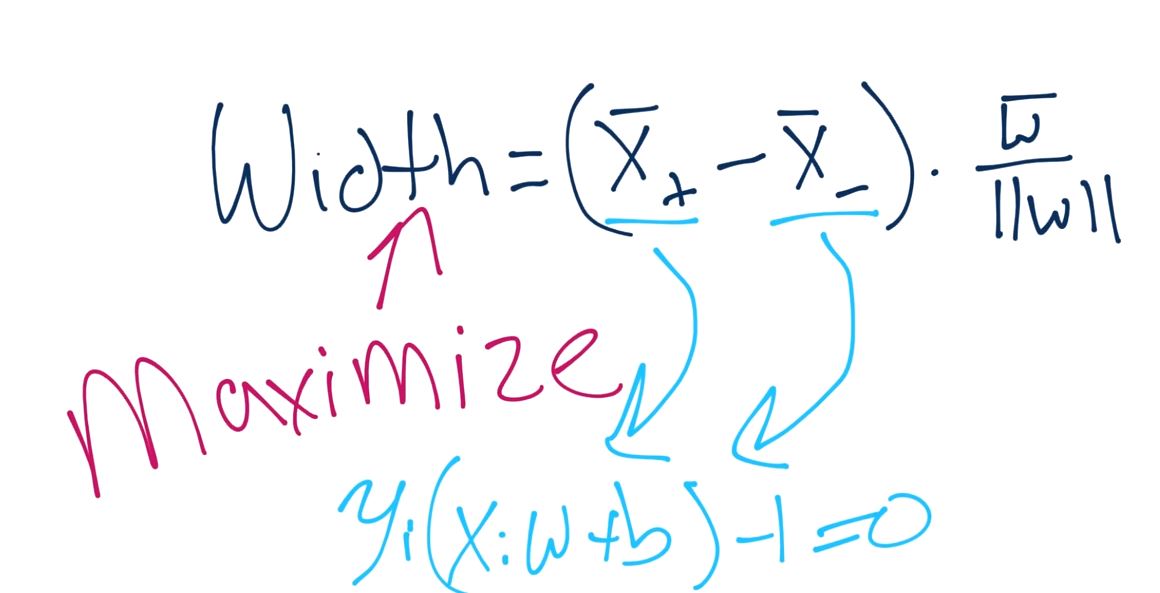 Width = (x̄₊ - x̄₋) · w̄/||w||
Maximize
yᵢ(xᵢ·w+b)-1=0